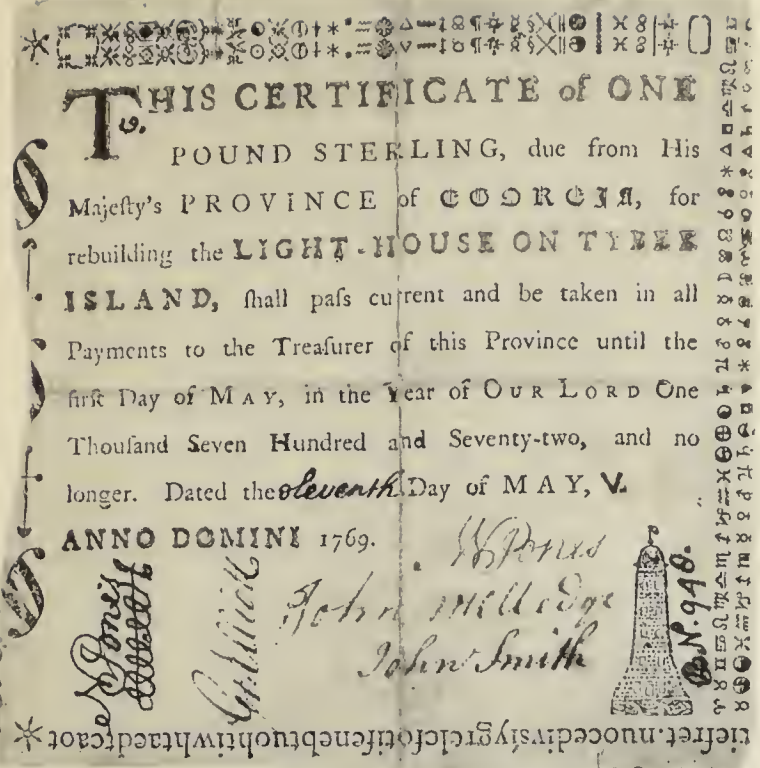 THIS CERTIFICATE of ONE
POUND STERLING, due from His
Majeſty's PROVINCE of GEORGIA, for
rebuilding the LIGHT-HOUSE ON TYBEE
ISLAND, ſhall paſs current and be taken in all
Payments to the Treaſurer of this Province until the
firſt Day of MAY, in the Year of OUR LORD One
Thouſand Seven Hundred and Seventy-two, and no
longer. Dated the eleventh Day of MAY, V.
ANNO DOMINI 1769.
W Jones
N Jones
John Milledge
John Smith
N. 940.